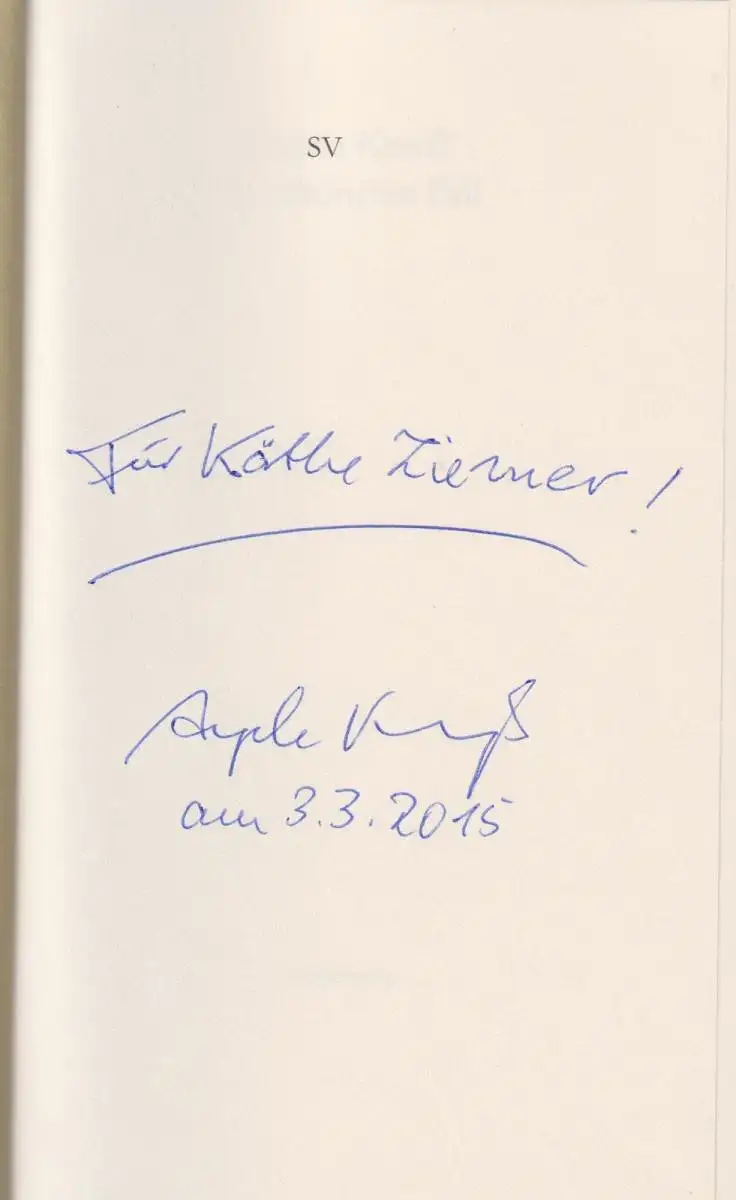 SV
Für Käthe Ziemer!
Angela Krauß
am 3.3.2015